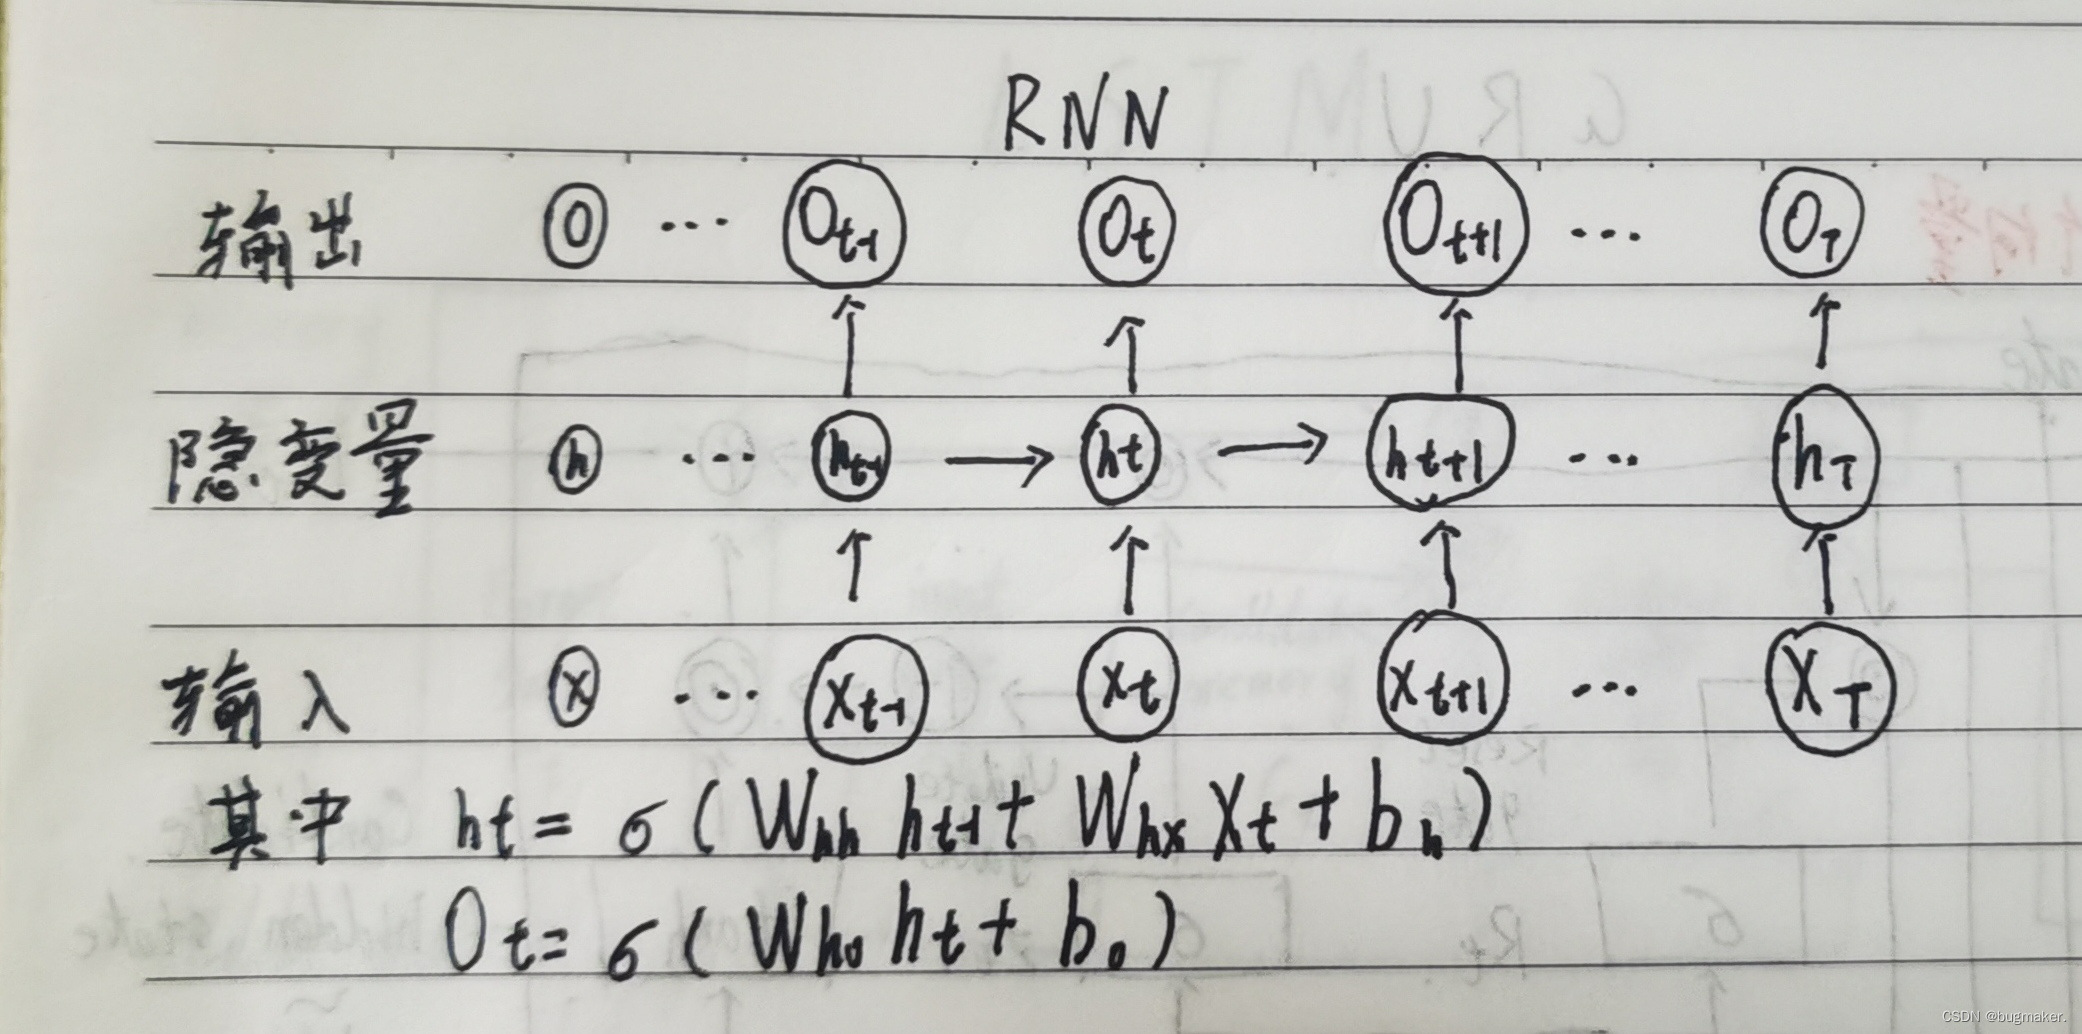 RNN
输出 O ... O_{t-1} O_t O_{t+1} ... O_T
隐变量 h ... h_{t-1} → h_t → h_{t+1} ... h_T
输入 x ... x_{t-1} x_t x_{t+1} ... x_T
其中 h_t = σ(W_{hh} h_{t-1} + W_{hx} x_t + b_h)
O_t = σ(W_{ho} h_t + b_o)
CSDN @bugmaker.